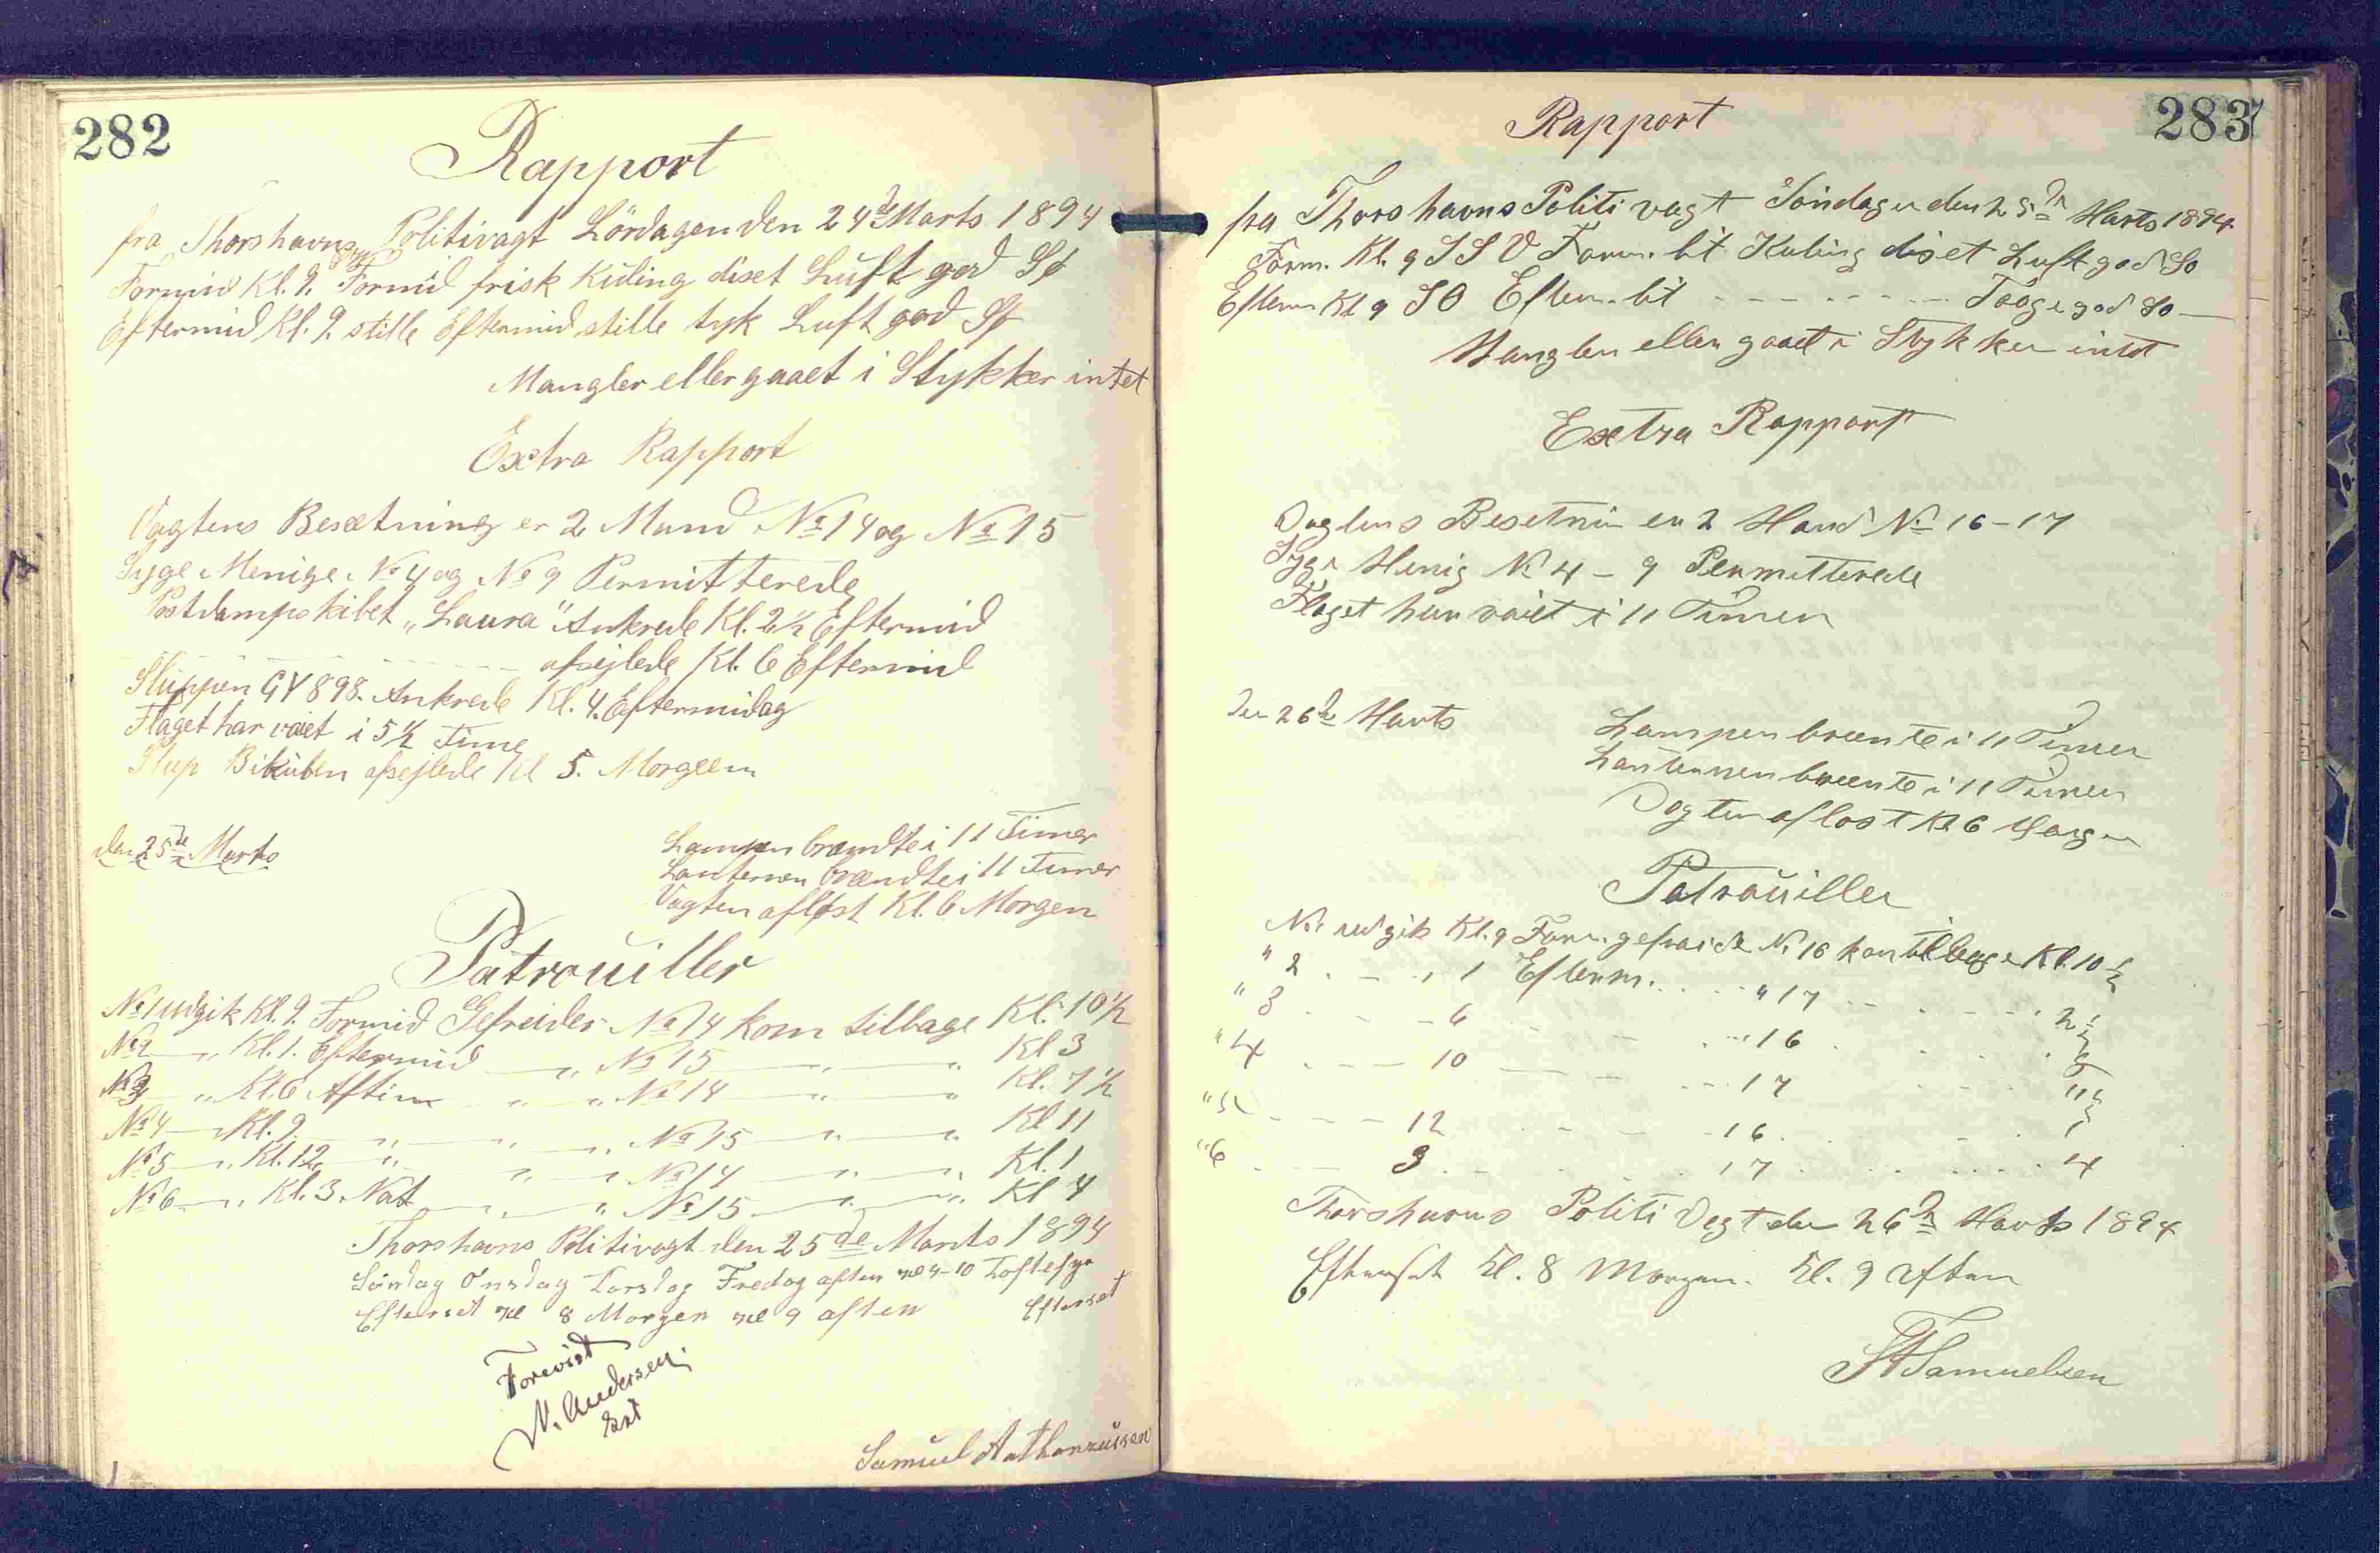 282
Rapport
fra Thorshavns Politivagt Lördagen den 24de Marts 1894
Formid Kl. 9. Formid frisk Kuling diset Luft god Sø
Eftermid Kl. 9 stille Eftermid stille tyk Luft god Sø
Mangler eller gaaet i Stykker intet
Extra Rapport
Vagtens Besætning er 2 Mand No 14 og No 15
Syge Menige No 4 og No 9 Permitterede
Postdampskibet „Laura" Ankrede Kl. 2½ Eftermid
- - - - - - afsejlede Kl. 6 Eftermid
Sluppen GY 898. Ankrede Kl. 4. Eftermidag
Flaget har vaiet i 5½ Time
Slup Bikuben afsejlede Kl 5. Morgeen
den 25de Marts
Lampen brændte i 11 Timer
Lanternen brændte i 11 Timer
Vagten afløst Kl. 6 Morgen
Patrouiller
No 1 udgik Kl. 9. Formid Gefreider No 14 kom tilbage Kl. 10½
No 2 — „ Kl. 1. Eftermid — „ No 15 — „ — „ Kl 3
No 3 „ Kl. 6 Aftin „ „ No 14 — „ — „ Kl. 7½
No 4 — Kl. 9. „ „ „ No 15 — „ — „ Kl 11
No 5 — „ Kl. 12 „ „ „ No 14 — „ — „ Kl. 1
No 6 — „ Kl. 3. Nat „ „ No 15 — „ — „ Kl 4
Thorshavns Politivagt den 25de Marts 1894
Söndag Onsdag Torsdag Fredag aften Kl 4-10 Loftefyr
Efterset Kl 8 Morgen Kl 9 aften Efterset
Forevist
N. Andersen
Samuel Aathanæüssen
283
Rapport
fra Thorshavns Politivagt Söndagen den 25de Marts 1894
Form. Kl. 9 SSV Form. lit Kuling diset Luft god So
Efterm Kl 9 SO Efterm. lit - - - - - - Taage god So —
Mangler eller gaaet i Stykker intet
Extra Rapport
Vagtens Besetnin er 2 Mand No 16-17
Syge Menig No 4 - 9 Permitterede
Flaget har vaiet i 11 Timer
Den 26de Marts
Lampen brænte i 11 Timer
Lanternen brænte i 11 Timer
Vagten aflöst Kl 6 Morgen
Patrouiller
No 1 udgik Kl. 9 Form. gefraide No 16 kom tilbage Kl. 10½
" 2 - - „ 1 Efterm. - - " 17 - - - - - 2½
" 3 - - - 6 - - - 16 - - -
" 4 - - - 10 - - - 17 - - - 11½
" 5 - - - 12 - - - 16 - - - 1
" 6 - - - 3 - - - 17 - - - 4
Thorshavns Politi Vagt den 26de Marts 1894
Efterset Kl. 8 Morgen. Kl. 9 Aften
Samuelsen